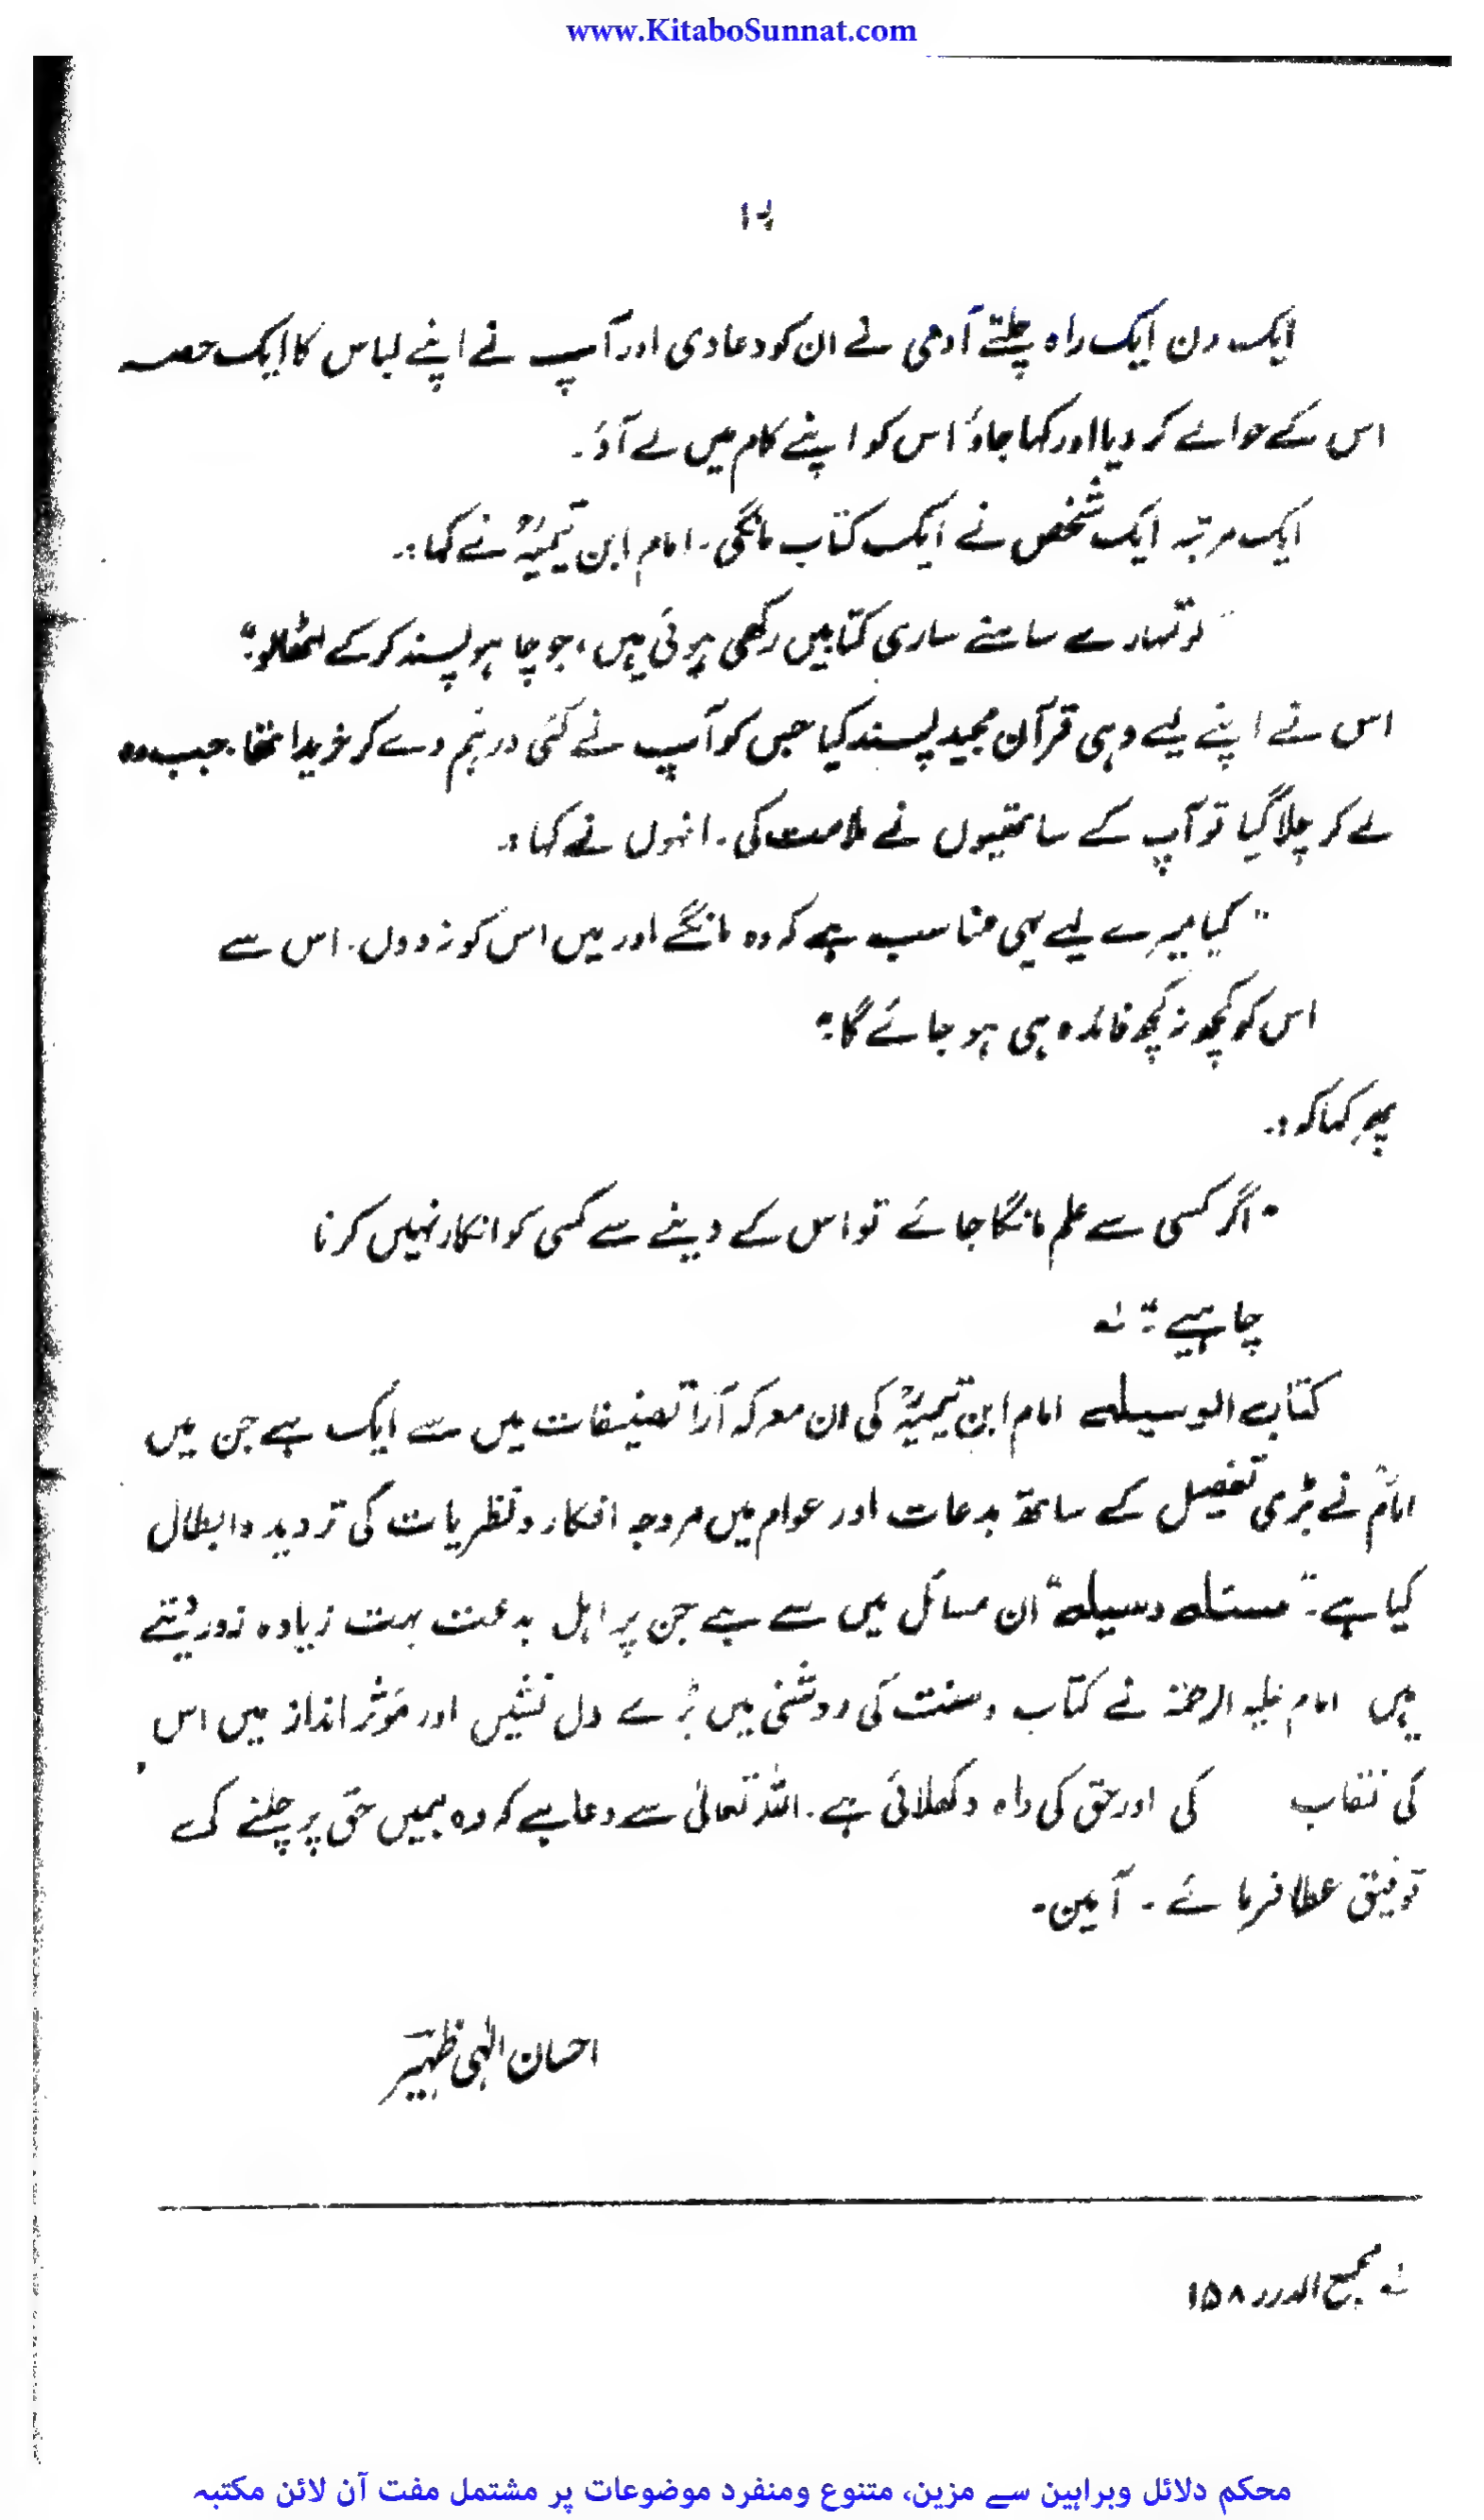 www.KitaboSunnat.com
۱۶
ایک دن ایک راہ چلتے آدمی نے ان کو دعا دی اور آپ نے اپنے لباس کا ایک حصہ
اس کے حوالے کر دیا اور کہا جاؤ اس کو اپنے کام میں لے آؤ۔
ایک مرتبہ ایک شخص نے ایک کتاب مانگی۔ امام ابن تیمیہؒ نے کہا:۔
تمہارے سامنے ساری کتابیں رکھی ہوئی ہیں، جو چاہو پسند کر کے اٹھالو۔"
اس نے اپنے لیے وہی قرآن مجید پسند کیا جس کو آپ نے کئی درہم دے کر خریدا تھا۔ جب وہ
لے کر چلا گیا تو آپ کے ساتھیوں نے ملامت کی۔ انہوں نے کہا:۔
"کیا میرے لیے یہی مناسب ہے کہ وہ مانگے اور میں اس کو نہ دوں۔ اس سے
اس کو کچھ نہ کچھ فائدہ ہی ہو جائے گا۔"
پھر کہا کہ:۔
"اگر کسی سے علم مانگا جائے تو اس کے دینے سے کسی کو انکار نہیں کرنا
چاہیے۔" لہ
کتاب الوسیلہ امام ابن تیمیہؒ کی ان معرکہ آرا تصنیفات میں سے ایک ہے جن میں
امامؒ نے بڑی تفصیل کے ساتھ بدعات اور عوام میں مروجہ افکار و نظریات کی تردید و ابطال
کیا ہے۔ "مسئلہ وسیلہ" ان مسائل میں سے ہے جن پر اہل بدعت بہت زیادہ زور دیتے
ہیں امام علیہ الرحمۃ نے کتاب و سنت کی روشنی میں بڑے دل نشیں اور مؤثر انداز میں اس
کی نقاب کی اور حق کی راہ دکھلائی ہے۔ اللہ تعالیٰ سے دعا ہے کہ وہ ہمیں حق پر چلنے کی
توفیق عطا فرمائے۔ آمین۔
احسان الٰہی ظہیر
لہ مجمع الدرر ۱۵۸
محکم دلائل وبراہین سے مزین، متنوع ومنفرد موضوعات پر مشتمل مفت آن لائن مکتبہ